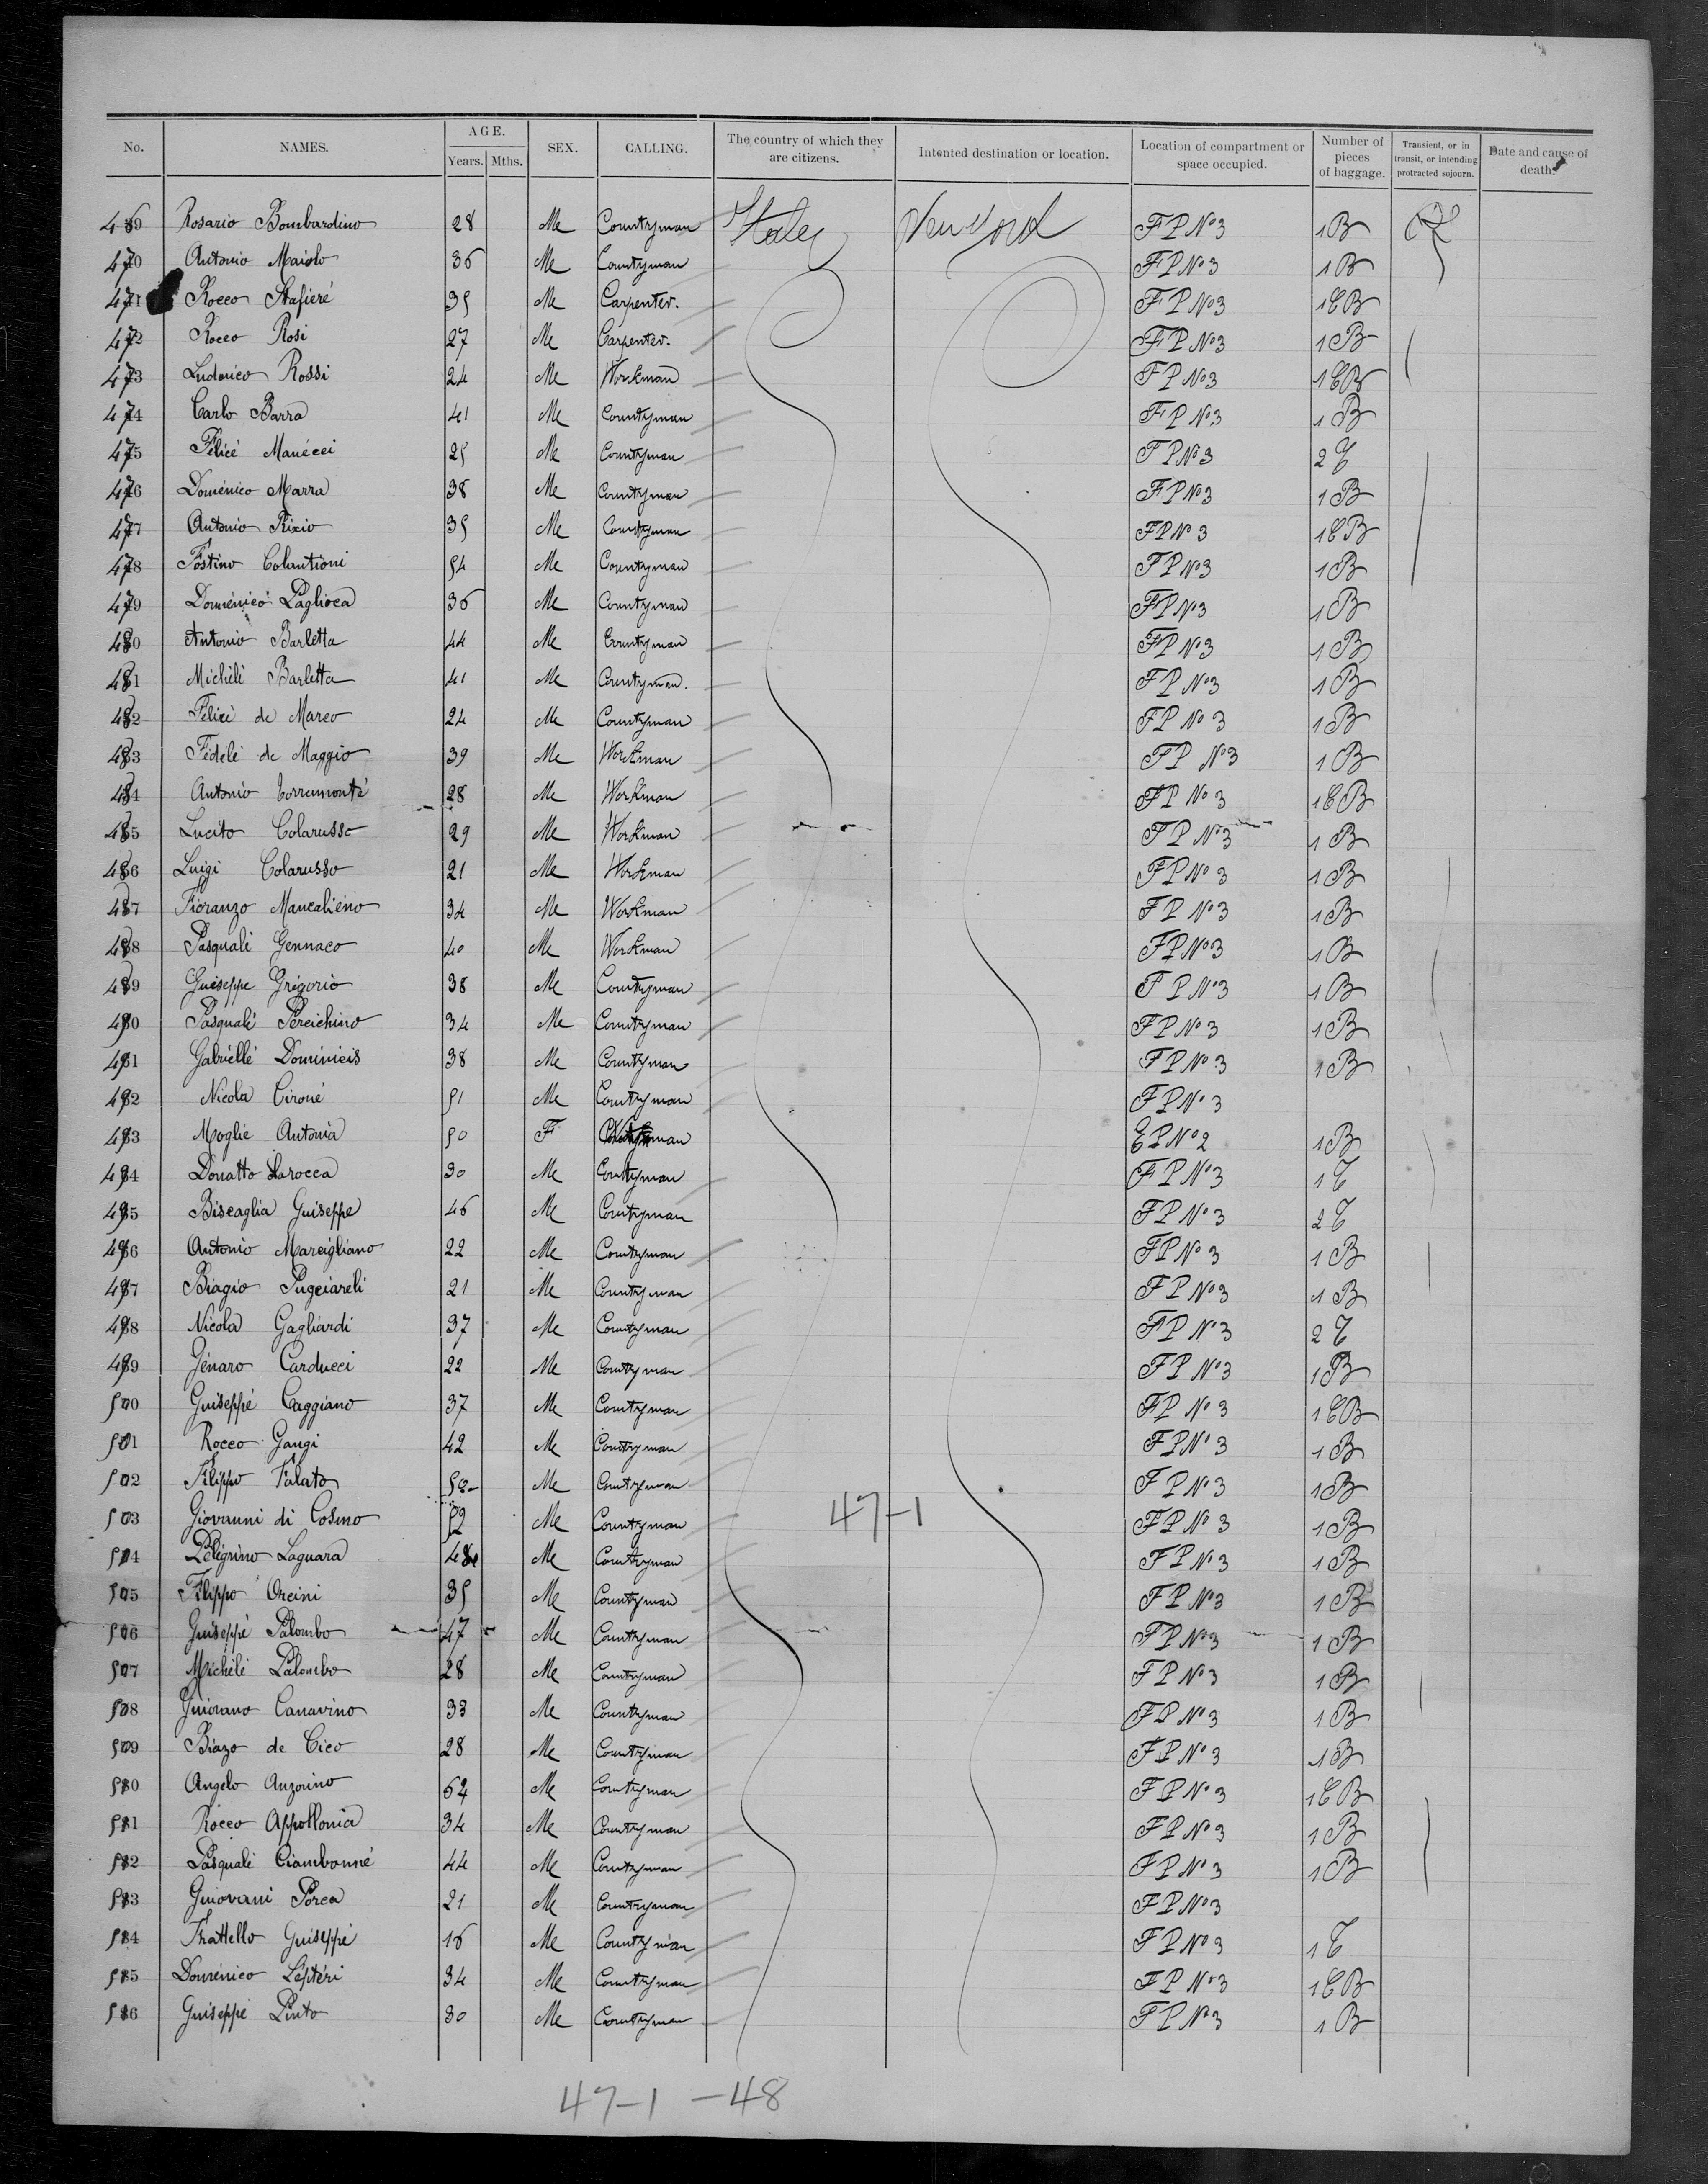 No. NAMES. AGE. Years. Mths. SEX. CALLING. The country of which they are citizens. Intented destination or location. Location of compartment or space occupied. Number of pieces of baggage. Transient, or in transit, or intending protracted sojourn. Date and cause of death.
469 Rosario Bombardino 28 Me Countryman Italy New York FP No 3 1 B
470 Antonio Maiolo 36 Me Countryman FP No 3 1 B
471 Rocco Stafieré 35 Me Carpenter. FP No 3 1 CB
472 Rocco Rosi 27 Me Carpenter. FP No 3 1 B
473 Ludovico Rossi 24 Me Workman FP No 3 1 CB
474 Carlo Barra 41 Me Countryman FP No 3 1 B
475 Félicé Manécci 25 Me Countryman FP No 3 2 C
476 Doménico Marra 38 Me Countryman FP No 3 1 B
477 Antonio Rixio 35 Me Countryman FP No 3 1 CB
478 Fostino Colantioni 54 Me Countryman FP No 3 1 B
479 Doménico Paglioca 36 Me Countryman FP No 3 1 B
480 Antonio Barletta 44 Me Countryman FP No 3 1 B
481 Michélé Barletta 41 Me Countryman. FP No 3 1 B
482 Félicé de Marco 24 Me Countryman FP No 3 1 B
483 Fédélé de Maggio 39 Me Workman FP No 3 1 B
484 Antonio Torremonté 28 Me Workman FP No 3 1 CB
485 Lucito Colarusso 29 Me Workman FP No 3 1 B
486 Luigi Colarusso 21 Me Workman FP No 3 1 B
487 Fioranzo Mancaliéno 34 Me Workman FP No 3 1 B
488 Pasquali Gennaco 40 Me Workman FP No 3 1 B
489 Guiseppe Grigorio 38 Me Countryman FP No 3 1 B
490 Pasquali Percichino 34 Me Countryman FP No 3 1 B
491 Gabriéllé Dominicis 38 Me Countryman FP No 3 1 B
492 Nicola Cironé 51 Me Countryman FP No 3
493 Moglie Antonia 50 F EP No 2 1 B
494 Donatto Larocca 30 Me Countryman FP No 3 1 C
495 Biscaglia Guiseppe 46 Me Countryman FP No 3 2 C
496 Antonio Marcigliano 22 Me Countryman FP No 3 1 B
497 Biagio Pugciaréli 21 Me Countryman FP No 3 1 B
498 Nicola Gagliardi 37 Me Countryman FP No 3 2 C
499 Génaro Carducci 22 Me Countryman FP No 3 1 B
500 Guiseppé Caggiano 37 Me Countryman FP No 3 1 CB
501 Rocco Gangi 42 Me Countryman FP No 3 1 B
502 Filippo Falato Me Countryman FP No 3 1 B
503 Giovanni di Cosmo 52 Me Countryman 47-1 FP No 3 1 B
504 Péligrino Laguara 48 Me Countryman FP No 3 1 B
505 Filippo Orcini 35 Me Countryman FP No 3 1 B
506 Guiseppé Palombo 47 Me Countryman FP No 3 1 B
507 Michélé Palombo 28 Me Countryman FP No 3 1 B
508 Guiorano Canavino 33 Me Countryman FP No 3 1 B
509 Biazo de Cico 28 Me Countryman FP No 3 1 B
510 Angelo Anzorino 62 Me Countryman FP No 3 1 CB
511 Rocco Appollonia 34 Me Countryman FP No 3 1 B
512 Pasquali Ciambonné 44 Me Countryman FP No 3 1 B
513 Guiovani Porca 21 Me Countryman FP No 3
514 Frattello Guiseppé 16 Me Countryman FP No 3 1 C
515 Doménico Léptéri 34 Me Countryman FP No 3 1 CB
516 Guiseppé Pinto 30 Me Countryman FP No 3 1 B
47-1 -48